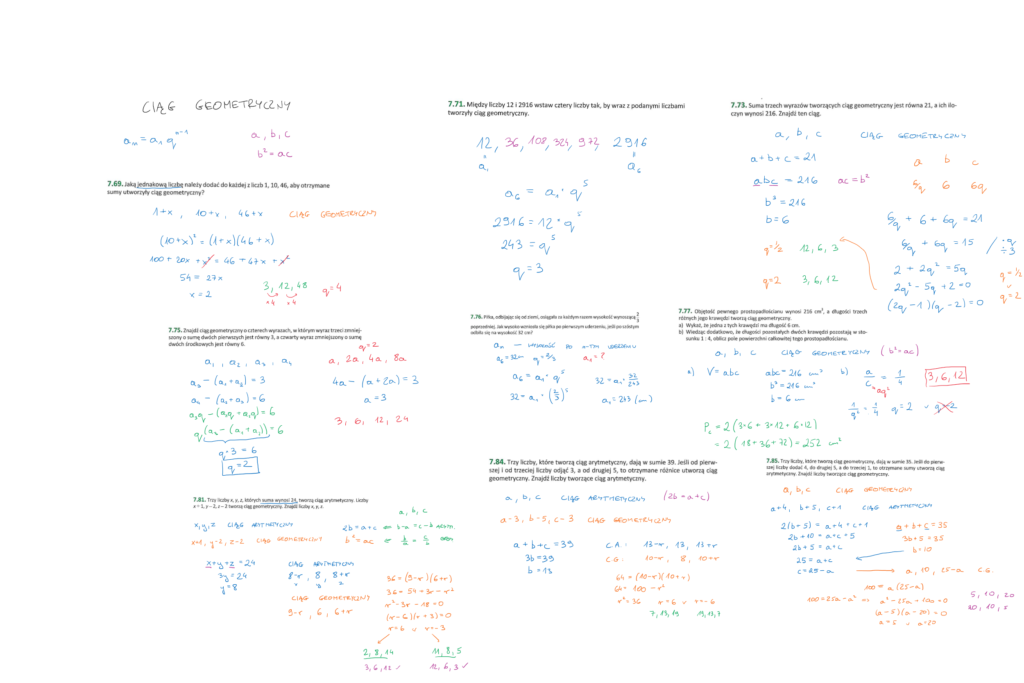 CIĄG GEOMETRYCZNY
aₙ = a₁ qⁿ⁻¹
a, b, c
b² = ac
7.69. Jaką jednakową liczbę należy dodać do każdej z liczb 1, 10, 46, aby otrzymane
sumy utworzyły ciąg geometryczny?
1+x, 10+x, 46+x CIĄG GEOMETRYCZNY
(10+x)² = (1+x)(46+x)
100 + 20x + x² = 46 + 47x + x²
54 = 27x
x = 2
3, 12, 48 q=4
·4 ·4
7.71. Między liczby 12 i 2916 wstaw cztery liczby tak, by wraz z podanymi liczbami
tworzyły ciąg geometryczny.
12, 36, 108, 324, 972, 2916
a₁ a₆
a₆ = a₁ · q⁵
2916 = 12 · q⁵
243 = q⁵
q = 3
7.73. Suma trzech wyrazów tworzących ciąg geometryczny jest równa 21, a ich ilo-
czyn wynosi 216. Znajdź ten ciąg.
a, b, c CIĄG GEOMETRYCZNY
a+b+c = 21
abc = 216 ac = b²
b³ = 216
b = 6
a b c
6/q 6 6q
6/q + 6 + 6q = 21
6/q + 6q = 15 / ·q ÷3
2 + 2q² = 5q
2q² - 5q + 2 = 0
(2q - 1)(q - 2) = 0
q = 1/2
v
q = 2
q=1/2 12, 6, 3
q=2 3, 6, 12
7.75. Znajdź ciąg geometryczny o czterech wyrazach, w którym wyraz trzeci zmniej-
szony o sumę dwóch pierwszych jest równy 3, a czwarty wyraz zmniejszony o sumę
dwóch środkowych jest równy 6.
q=2
a₁, a₂, a₃, a₄ a, 2a, 4a, 8a
a₃ - (a₁+a₂) = 3 4a - (a+2a) = 3
a₄ - (a₂+a₃) = 6 a = 3
a₃q - (a₁q + a₂q) = 6
q(a₃ - (a₁+a₂)) = 6 3, 6, 12, 24
q · 3 = 6
q = 2
7.76. Piłka, odbijając się od ziemi, osiągała za każdym razem wysokość wynoszącą 2/3
poprzedniej. Jak wysoko wzniosła się piłka po pierwszym uderzeniu, jeśli po szóstym
wzbiła się na wysokość 32 cm?
aₙ — WYSOKOŚĆ PO n-TYM UDERZENIU
a₆ = 32 q = 2/3 a₁ = ?
a₆ = a₁ · q⁵ 32 = a₁ · 32/243
32 = a₁ · (2/3)⁵ a₁ = 243 (cm)
7.77. Objętość pewnego prostopadłościanu wynosi 216 cm³, a długości trzech
różnych jego krawędzi tworzą ciąg geometryczny.
a) Wykaż, że jedna z tych krawędzi ma długość 6 cm.
b) Wiedząc dodatkowo, że długości pozostałych dwóch krawędzi pozostają w sto-
sunku 1 : 4, oblicz pole powierzchni całkowitej tego prostopadłościanu.
a, b, c CIĄG GEOMETRYCZNY (b²=ac)
a) V = abc abc = 216 cm³ b) a/c = 1/4 3, 6, 12
b³ = 216 cm³ aq²
b = 6 cm 1/q² = 1/4 q = 2 v q = -2
P = 2(3·6 + 3·12 + 6·12)
= 2(18 + 36 + 72) = 252 cm²
7.81. Trzy liczby x, y, z, których suma wynosi 24, tworzą ciąg arytmetyczny. Liczby
x + 1, y − 2, z − 2 tworzą ciąg geometryczny. Znajdź liczby x, y, z.
a, b, c
x, y, z CIĄG ARYTMETYCZNY 2b = a+c ⇔ b-a = c-b ARYTM.
x+1, y-2, z-2 CIĄG GEOMETRYCZNY b² = ac ⇔ b/a = c/b GEOM
x+y+z = 24 CIĄG ARYTMETYCZNY
3y = 24 8-r, 8, 8+r
y = 8 x y z
CIĄG GEOMETRYCZNY
9-r, 6, 6+r
36 = (9-r)(6+r)
36 = 54 + 3r - r²
r² - 3r - 18 = 0
(r-6)(r+3) = 0
r = 6 v r = -3
2, 8, 14 11, 8, 5
3, 6, 12 ✓ 12, 6, 3 ✓
7.84. Trzy liczby, które tworzą ciąg arytmetyczny, dają w sumie 39. Jeśli od pierw-
szej i od trzeciej liczby odjąć 3, a od drugiej 5, to otrzymane różnice utworzą ciąg
geometryczny. Znajdź liczby tworzące ciąg arytmetyczny.
a, b, c CIĄG ARYTMETYCZNY (2b = a+c)
a-3, b-5, c-3 CIĄG GEOMETRYCZNY
a+b+c = 39 C.A. 13-r, 13, 13+r
3b = 39 C.G. 10-r, 8, 10+r
b = 13
64 = (10-r)(10+r)
64 = 100 - r²
r² = 36 r = 6 v r = -6
7, 13, 19 19, 13, 7
7.85. Trzy liczby, które tworzą ciąg geometryczny, dają w sumie 35. Jeśli do pierw-
szej liczby dodać 4, do drugiej 5, a do trzeciej 1, to otrzymane sumy utworzą ciąg
arytmetyczny. Znajdź liczby tworzące ciąg geometryczny.
a, b, c CIĄG GEOMETRYCZNY
a+4, b+5, c+1 CIĄG ARYTMETYCZNY
2(b+5) = a+4 + c+1 a+b+c = 35
2b+10 = a+c+5 3b+5 = 35
2b+5 = a+c b = 10
25 = a+c
c = 25-a a, 10, 25-a C.G.
100 = a(25-a)
100 = 25a - a² ⇔ a² - 25a + 100 = 0
(a-5)(a-20) = 0
a = 5 v a = 20
5, 10, 20
20, 10, 5